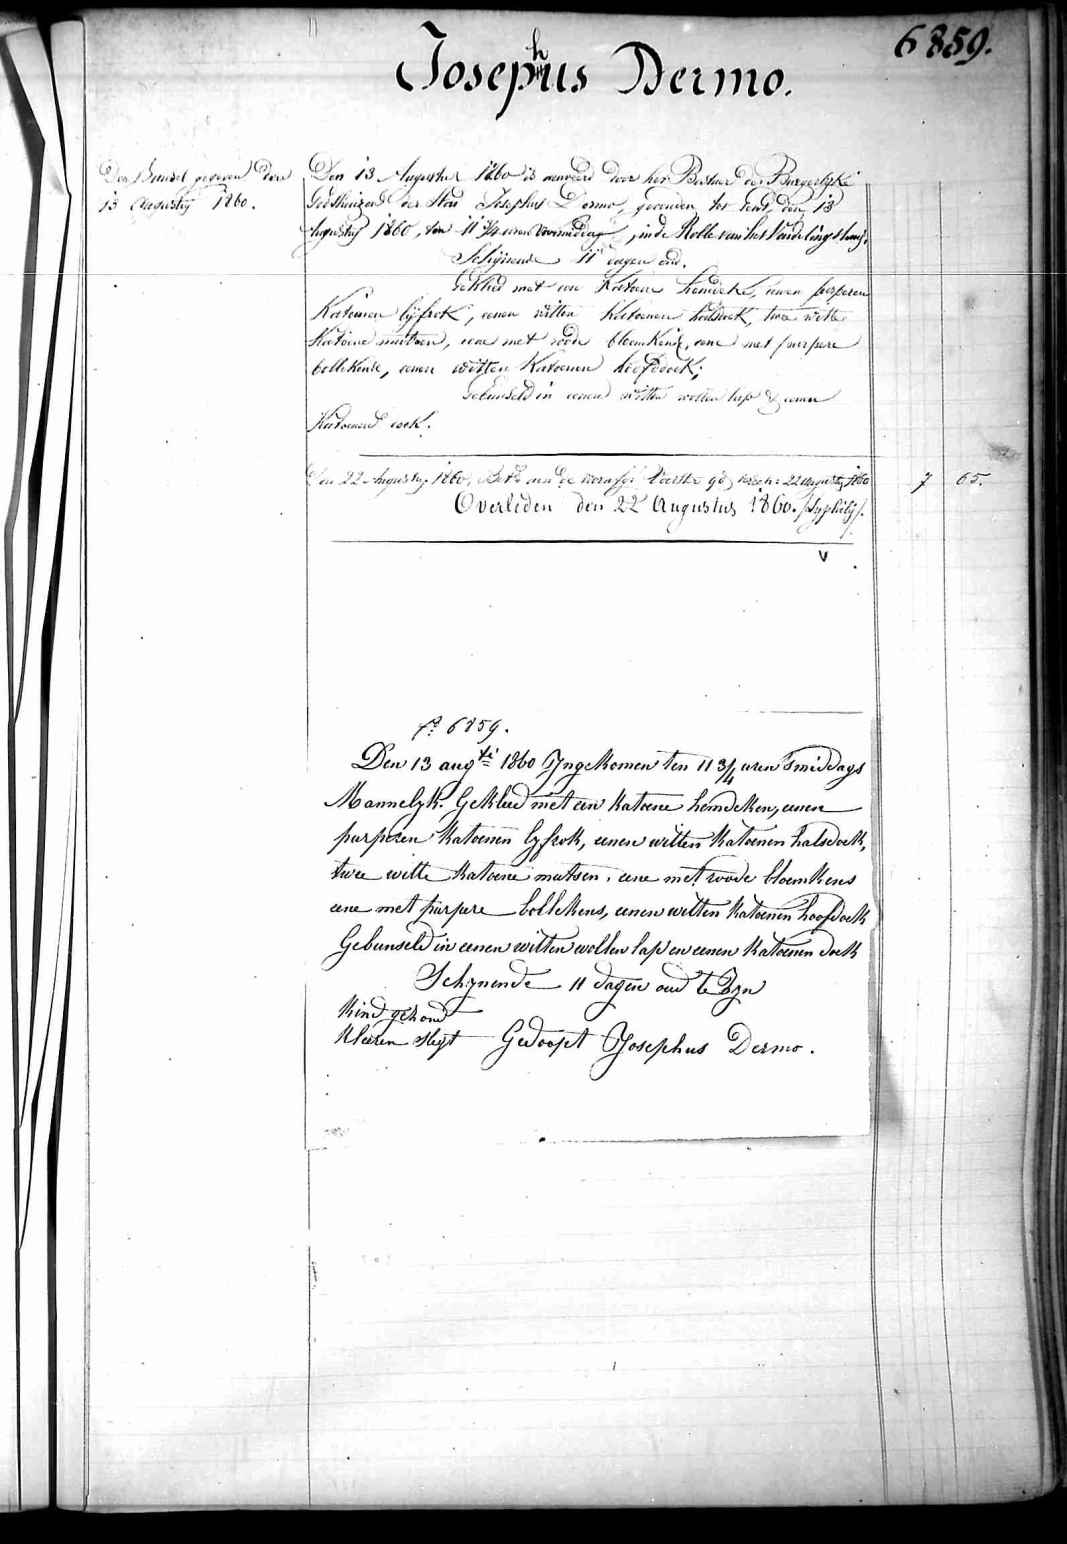 6859.
Josephus Dermo.
Den Bundel gegeven den
13 Augusty 1860.
Den 13 Augustus 1860 is aenveerd door het Bestuer der Burgerlyke
Godshuizen der Stad Josephus Dermo, gevonden, ten den 13
Augusty 1860, ten 11 3/4 uren voormiddag, in de Rolle van het Vondelingshuis.
Schynende 11 dagen oud.
Gekleed met een Katoene hemdeke, eenen purperen
Katoenen lyfrok, eenen witten Katoenen halsdoek, twee witte
Katoene mutsen, eene met roode bloemkens, eene met purpere
bollekens, eenen witten Katoenen hoofdoek;
Gebunseld in eenen witten wollen lap & eenen
Katoenen doek.
Den 22 Augusty 1860, Bet. aen de 22 Augusty 1860 7 65.
Overleden den 22 Augustus 1860. /Syphilis/.
V
No 6859.
Den 13 augti 1860 Yngekomen ten 11 3/4 uren smiddags
Mannelyk. Gekleed met een katoene hemdeken, eenen
purperen katoenen lyfrok, eenen witten katoenen halsdoek,
twee witte katoene mutsen, eene met roode bloemkens
eene met purpere bollekens, eenen witten katoenen hoofdoek
Gebunseld in eenen witten wollen lap en eenen katoenen doek
Schynende 11 dagen oud te Zyn
Kind gezond
Kleeren slegt Gedoopt Josephus Dermo.